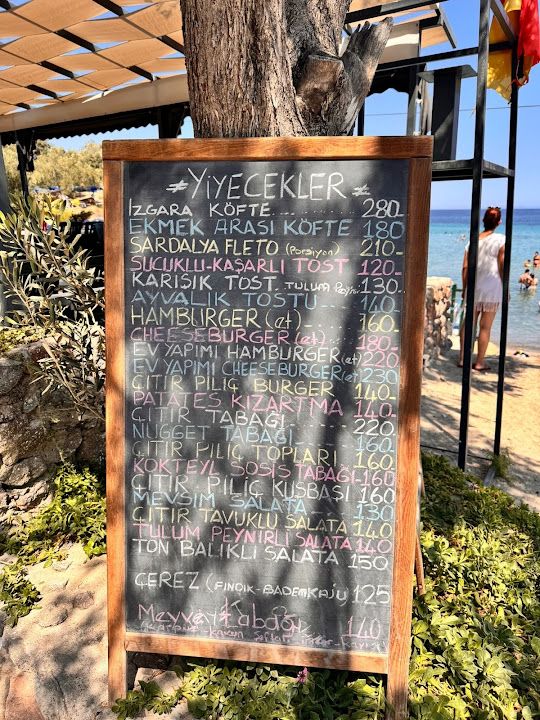 ≠ YİYECEKLER ≠
IZGARA KÖFTE ........ 280-
EKMEK ARASI KÖFTE 180
SARDALYA FLETO (Porsiyon) 210-
SUCUKLU-KAŞARLI TOST 120-
KARIŞIK TOST. TULUM Peynirli 130-
AYVALIK TOSTU ...... 140-
HAMBURGER (et) ..... 160-
CHEESEBURGER (et) ... 180-
EV YAPIMI HAMBURGER (et) 220
EV YAPIMI CHEESEBURGER (et) 230
ÇITIR PİLİÇ BURGER 140-
PATATES KIZARTMA 140-
ÇITIR TABAĞI ....... 220
NUGGET TABAĞI .... 160-
ÇITIR PİLİÇ TOPLARI 160
KOKTEYL SOSİS TABAĞI 160
ÇITIR PİLİÇ KUŞBAŞI 160
MEVSİM SALATA .... 130
ÇITIR TAVUKLU SALATA 140
TULUM PEYNİRLİ SALATA 140
TON BALIKLI SALATA 150
ÇEREZ (FINDIK-BADEM KAJU) 125
Meyve Tabağı 140